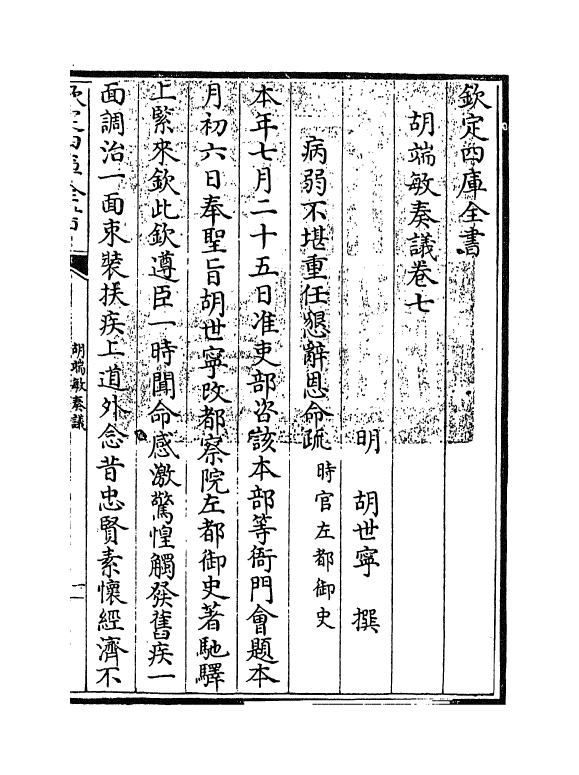 欽定四庫全書
胡端敏奏議卷七
明 胡世寧 撰
病弱不堪重任懇辭恩命疏 時官左都御史
本年七月二十五日准吏部咨該本部等衙門會題本
月初六日奉聖旨胡世寧改都察院左都御史著馳驛
上緊來欽此欽遵臣一時聞命感激驚惶觸發舊疾一
面調治一面束裝扶疾上道外念昔忠賢素懷經濟不
欽定四庫全書
胡端敏奏議
一